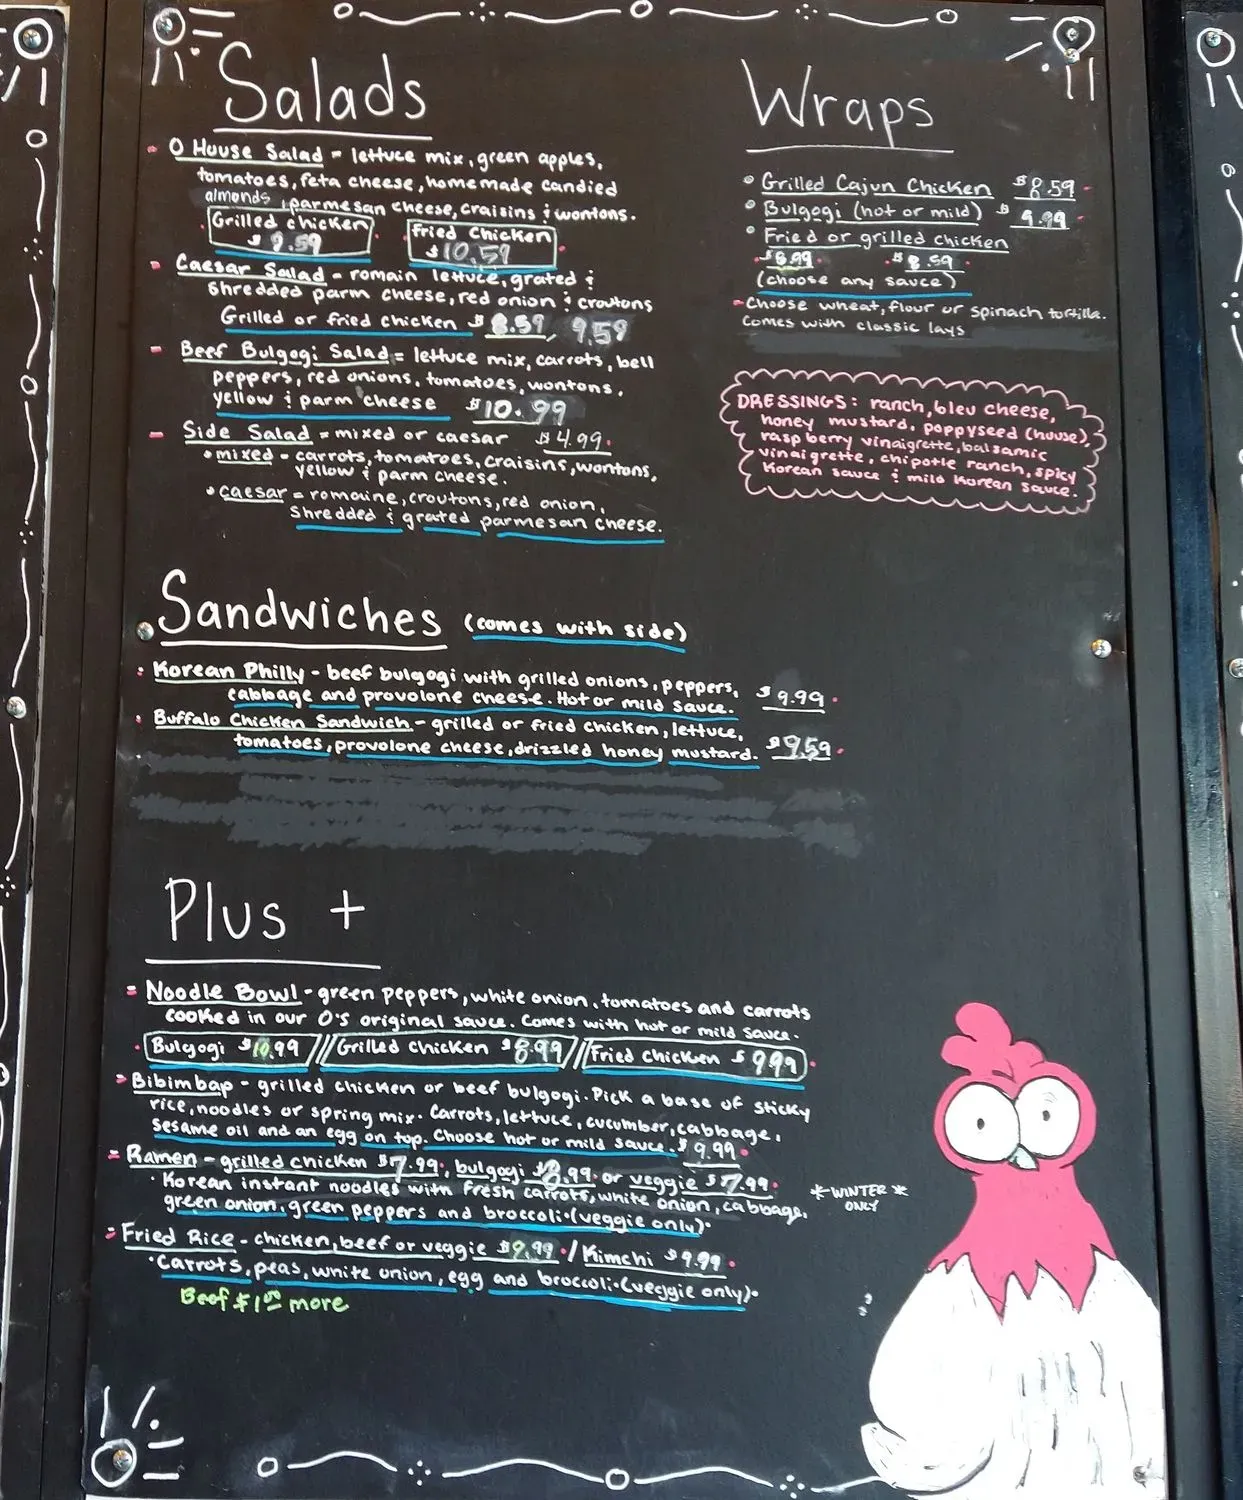 Salads
O House Salad = lettuce mix, green apples,
tomatoes, feta cheese, homemade candied
almonds, parmesan cheese, craisins & wontons.
Grilled chicken
fried Chicken
$ 9.59
$ 10.59
Caesar Salad - romain lettuce, grated &
shredded parm cheese, red onion & croutons
Grilled or fried chicken $8.59, 9.59
Beef Bulgogi Salad = lettuce mix, carrots, bell
peppers, red onions, tomatoes, wontons,
yellow & parm cheese $10.99
Side Salad = mixed or caesar $4.99.
mixed - carrots, tomatoes, craisins, wontons,
yellow & parm cheese.
caesar = romaine, croutons, red onion,
Shredded & grated parmesan cheese.
Wraps
Grilled Cajun Chicken $8.59
Bulgogi (hot or mild) $ 9.99
Fried or grilled chicken
$8.99 $8.59
(choose any sauce)
-Choose wheat, flour or spinach tortilla.
Comes with classic lays
DRESSINGS: ranch, bleu cheese,
honey mustard, poppyseed (house),
raspberry vinaigrette, balsamic
vinaigrette, chipotle ranch, spicy
Korean sauce & mild Korean sauce.
Sandwiches (comes with side)
Korean Philly - beef bulgogi with grilled onions, peppers,
cabbage and provolone cheese. Hot or mild sauce. $9.99
Buffalo Chicken Sandwich - grilled or fried chicken, lettuce,
tomatoes, provolone cheese, drizzled honey mustard. $9.59
Plus +
Noodle Bowl - green peppers, white onion, tomatoes and carrots
cooked in our O'S original sauce. Comes with hot or mild sauce.
Bulgogi $10.99 // Grilled chicken $8.99 // Fried chicken $ 9.99
Bibimbap - grilled chicken or beef bulgogi. Pick a base of sticky
rice, noodles or spring mix. Carrots, lettuce, cucumber, cabbage,
sesame oil and an egg on top. Choose hot or mild sauce. $ 9.99
Ramen - grilled chicken $7.99, bulgogi $8.99 or veggie $7.99
Korean instant noodles with fresh carrots, white onion, cabbage,
green onion, green peppers and broccoli. (veggie only)
* WINTER *
ONLY
Fried Rice - chicken, beef or veggie $9.99 / Kimchi $9.99
Carrots, peas, white onion, egg and broccoli. (veggie only)
Beef $1.00 more